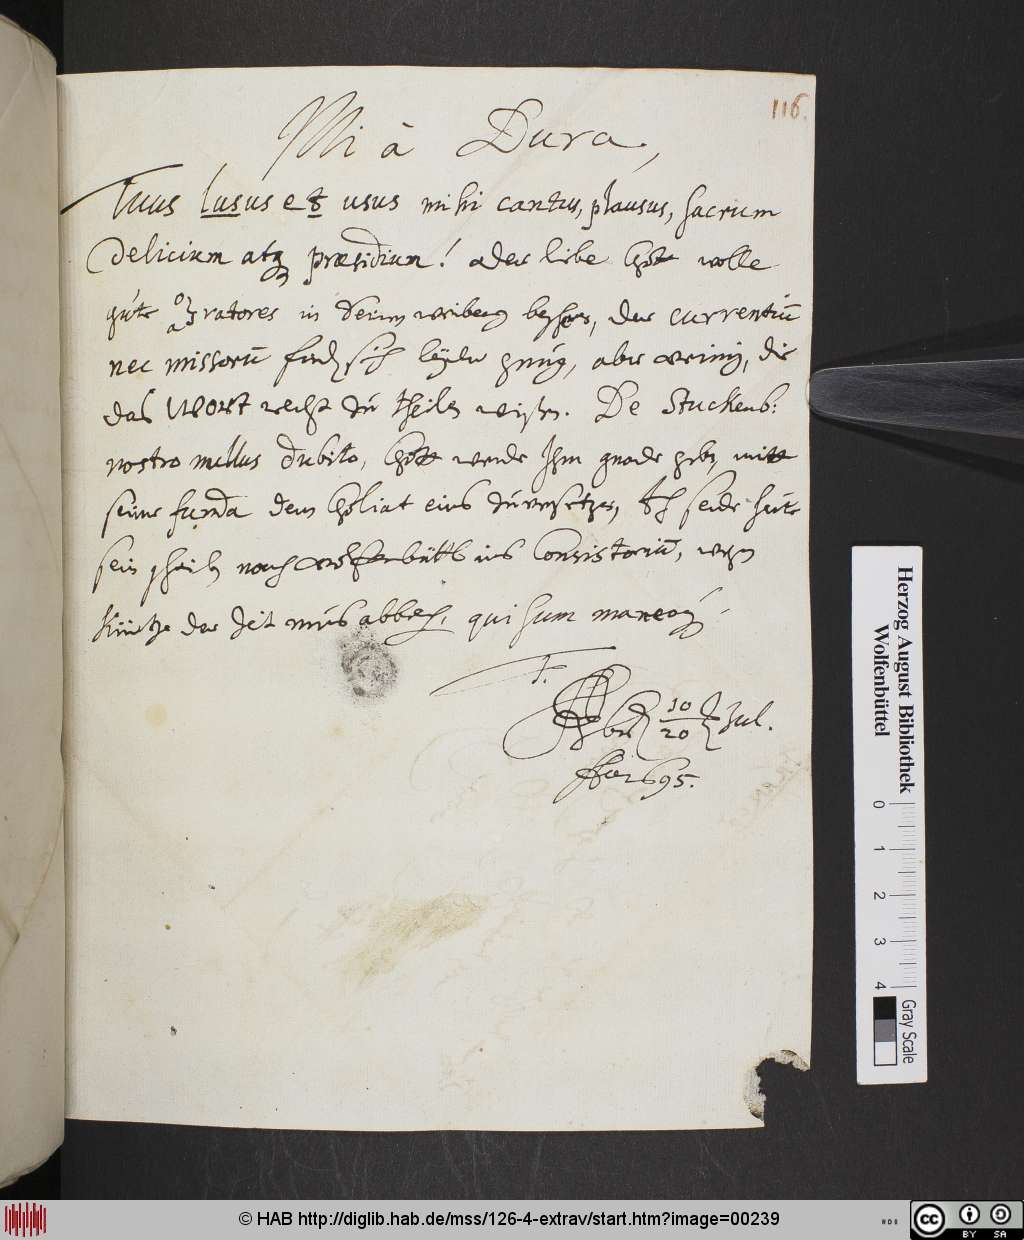 116.
Mi à Dura,
Tuus lusus et usus mihi cantus, plausus, sacrum
Delicium atq præsidium! der liebe Gott wolle
gute ratores in seinen weinberg, der currentiū
nec missorū sich leyder gnug, aber wenig, die
das Wort recht zu theilen wißen. De Stuckenb:
nostro nullus dubito, Gott werde Ihm gnade geben, mitt
seiner funda dem Goliat eins zu versetzen, Ich sende heute
sein nach Wolfenbüttel ins Consistoriū, wegen
Kürtze der Zeit mus abbrechen, qui sum maneoq.
T.
10
20 Jul.
695.
Herzog August Bibliothek
Wolfenbüttel
0 1 2 3 4
Gray Scale
© HAB http://diglib.hab.de/mss/126-4-extrav/start.htm?image=00239
cc BY SA